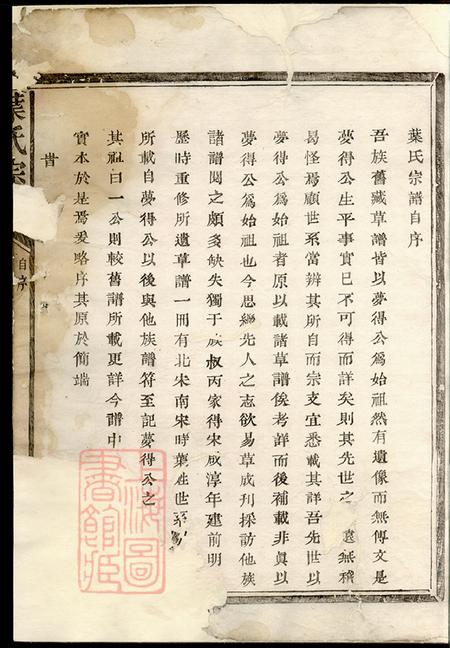 葉氏宗譜自序
吾族舊藏草譜皆以夢得公爲始祖然有遺像而無傳文是
夢得公生平事實已不可得而詳矣則其先世之遠無稽
曷怪焉顧世系當辨其所自而宗支宜悉載其詳吾先世以
夢得公爲始祖者原以載諸草譜俟考詳而後補載非眞以
夢得公爲始祖也今思繼先人之志欲易草成刋採訪他族
諸譜閱之頗多缺失獨于族叔丙家得宋咸淳年建前明
歷時重修所遺草譜一冊有北宋南宋時葉姓世系
所載自夢得公以後與他族譜符至記夢得公之
其祖曰一公則較舊譜所載更詳今譜中
實本於是焉爰略序其原於簡端
昔
葉氏宗
自序
上海圖書館藏